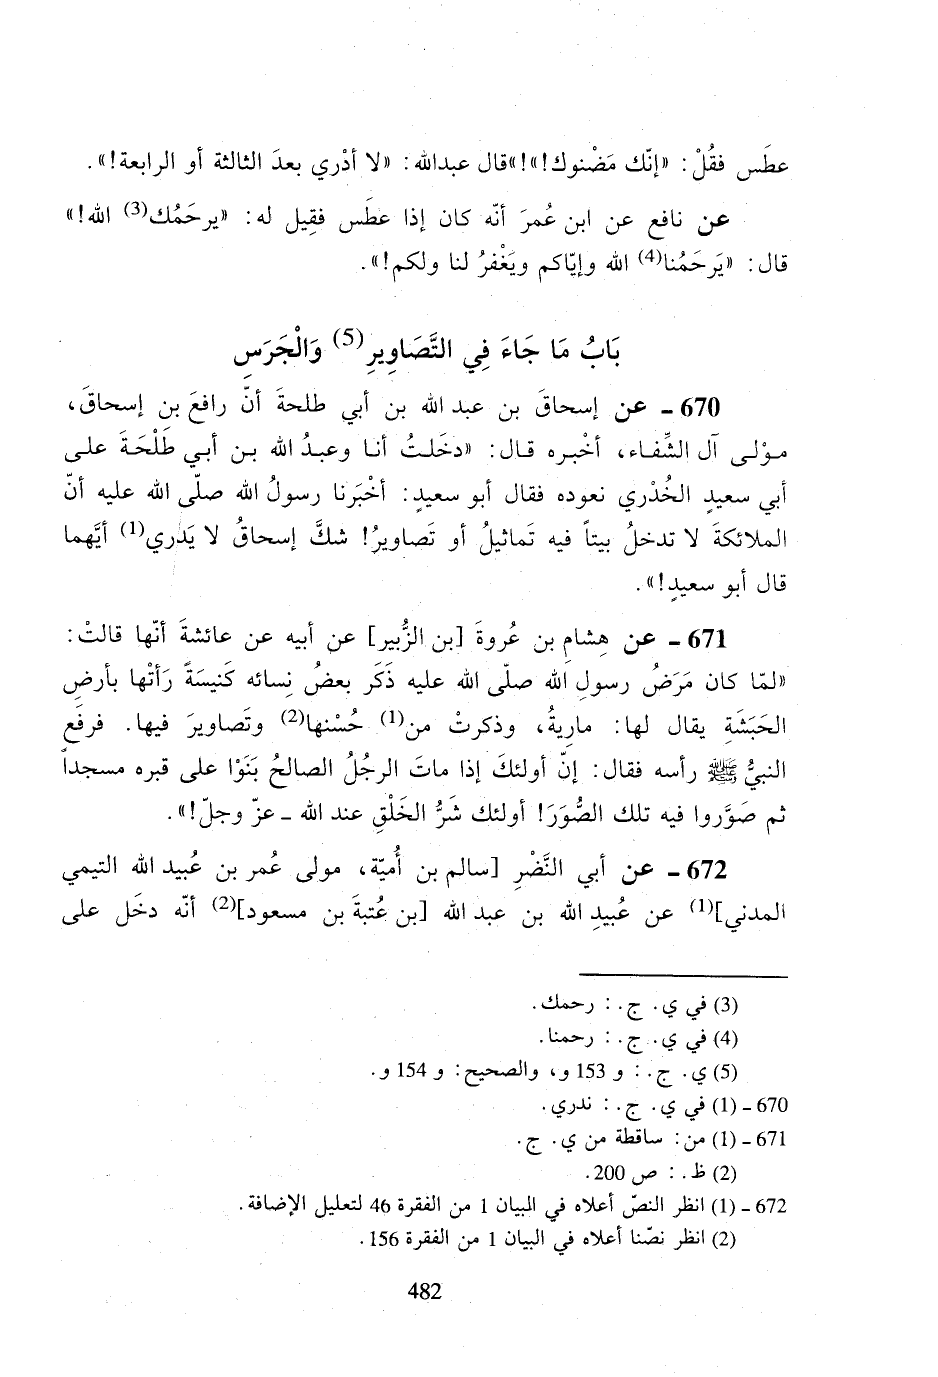 عطَس فقُلْ: «إنّك مَضْنوك!»!»قال عبدالله: «لا أدْري بعدَ الثالثة أو الرابعة!».
عن نافع عن ابن عُمرَ أنّه كان إذا عطَس فقِيل له: «يرحَمُك(3) الله!»
قال: «يَرحَمُنا(4) الله وإيّاكم ويَغْفرُ لنا ولكم!».
بَابُ مَا جَاءَ فِي التَّصَاوِيرِ(5) وَالْجَرَسِ
670 ـ عن إسحاقَ بن عبد الله بن أبي طلحةَ أنّ رافعَ بن إسحاقَ،
موْلى آل الشِّفاء، أخْبره قال: «دخَلتُ أنا وعبدُ الله بن أبي طَلْحَةَ على
أبي سعيدٍ الخُدْري نعوده فقال أبو سعيدٍ: أخْبَرنا رسولُ الله صلّى الله عليه أنّ
الملائكةَ لا تدخلُ بيتاً فيه تَماثيلُ أو تَصاويرُ! شكَّ إسحاقُ لا يَدْري(1) أيَّهما
قال أبو سعيدٍ!».
671 ـ عن هِشامِ بن عُروةَ [بن الزُّبير] عن أبيه عن عائشةَ أنّها قالتْ:
«لمّا كان مَرَضُ رسولِ الله صلّى الله عليه ذَكَر بعضُ نِسائه كَنيسَةً رَأتْها بأرضِ
الحَبَشَةِ يقال لها: ماريةُ، وذكرتْ من(1) حُسْنِها(2) وتَصاويرَ فيها. فرفَع
النبيُّ ﷺ رأسه فقال: إنّ أولئكَ إذا ماتَ الرجُلُ الصالحُ بَنَوْا على قبره مسجداً
ثم صَوَّروا فيه تلك الصُّوَرَ! أولئك شَرُّ الخَلْقِ عند الله ـ عزّ وجلّ!».
672 ـ عن أبي النَّضْرِ [سالم بن أُميّة، مولى عُمر بن عُبيد الله التيمي
المدني](1) عن عُبيدِ الله بن عبد الله [بن عُتبةَ بن مسعود](2) أنّه دخَل على
(3) في ي. ج.: رحمك.
(4) في ي. ج.: رحمنا.
(5) ي. ج.: و 153 و، والصحيح: و 154 و.
670 ـ (1) في ي. ج.: ندري.
671 ـ (1) من: ساقطة من ي. ج.
(2) ظ.: ص 200.
672 ـ (1) انظر النصّ أعلاه في البيان 1 من الفقرة 46 لتعليل الإضافة.
(2) انظر نصّنا أعلاه في البيان 1 من الفقرة 156.
482